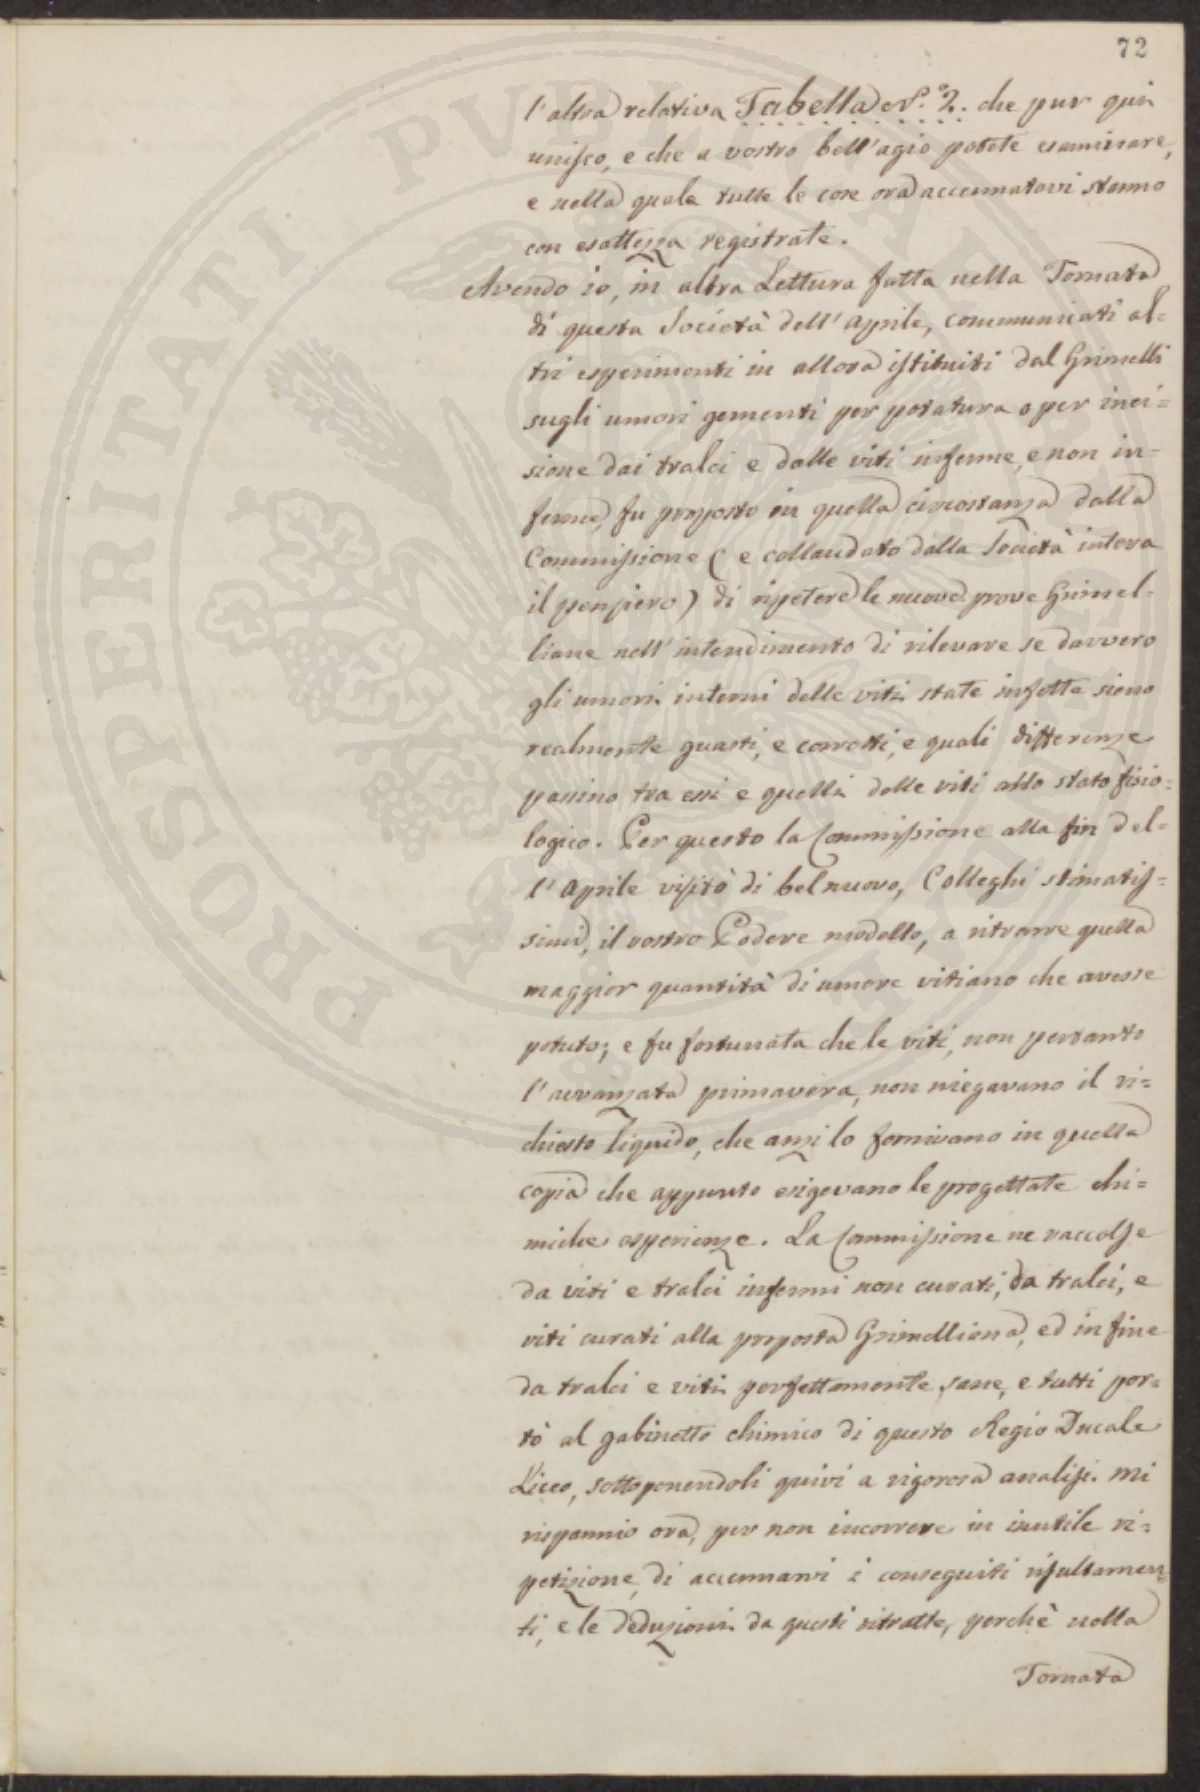 72
l'altra relativa Tabella N.° 2. che pur qui
unisco, e che a vostro bell'agio potete esaminare,
e nella quale tutte le cose ora accennatovi stanno
con esattezza registrate.
Avendo io, in altra Lettura fatta nella Tornata
di questa Società dell'Aprile, communicati al=
tri esperimenti in allora istituiti dal Grimelli
sugli umori gementi per potatura o per inci=
sione dai tralci e dalle viti inferme, e non in=
ferme, fu proposto in quella circostanza dalla
Commissione (e collaudato dalla Società intera
il pensiero) di ripetere le nuove prove Grimel=
liane nell'intendimento di rilevare se davvero
gli umori interni delle viti state infette sieno
realmente guasti, e corrotti, e quali differenze
passino tra essi e quelli delle viti allo stato fisio=
logico. Per questo la Commissione alla fin del=
l'Aprile visitò di bel nuovo, Colleghi stimatis=
simi, il vostro Podere modello, a ritrarre quella
maggior quantità di umore vitiano che avesse
potuto; e fu fortunata che le viti, non pertanto
l'avvanzata primavera, non niegavano il ri=
chiesto liquido, che anzi lo fornivano in quella
copia che appunto esigevano le progettate chi=
miche esperienze. La Commissione ne raccolse
da viti e tralci infermi non curati, da tralci, e
viti curati alla proposta Grimelliana, ed in fine
da tralci e viti perfettamente sane, e tutti por=
tò al gabinetto chimico di questo Regio Ducale
Liceo, sottoponendoli quivi a rigorosa analisi. Mi
risparmio ora, per non incorrere in inutile ri=
petizione, di accennarvi i conseguiti risultamen=
ti, e le deduzioni da questi ritratte, perchè nella
Tornata
PROSPERITATI PUBLICAE